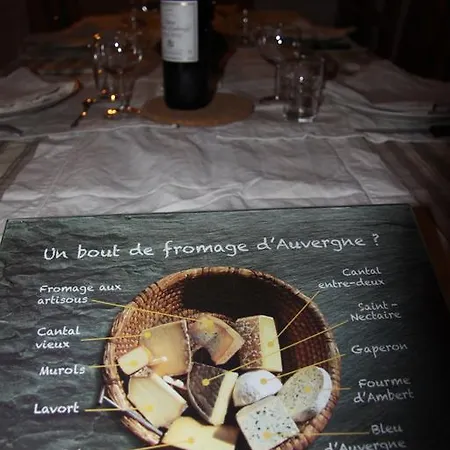 Un bout de fromage d'Auvergne ?
Fromage aux
artisous
Cantal
vieux
Murols
Lavort
Cantal
entre-deux
Saint-
Nectaire
Gaperon
Fourme
d'Ambert
Bleu
d'Auvergne